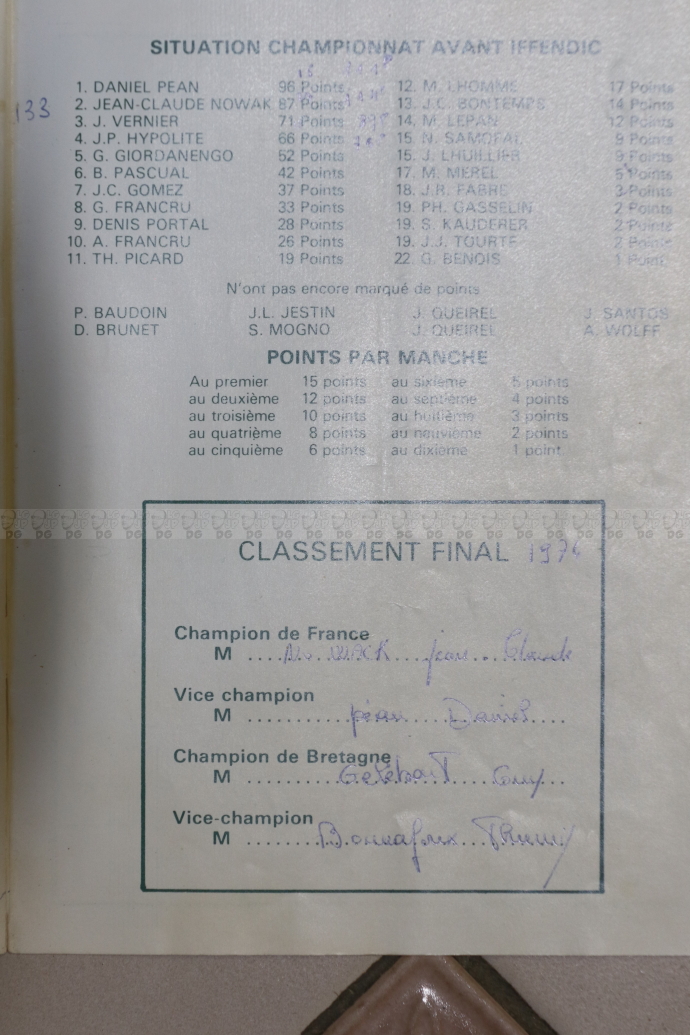 SITUATION CHAMPIONNAT AVANT IFFENDIC
1. DANIEL PEAN 96 Points 12. M. LHOMME 17 Points
133 2. JEAN-CLAUDE NOWAK 87 Points 13. J.C. BONTEMPS 14 Points
3. J. VERNIER 71 Points 14. M. LEPAN 12 Points
4. J.P. HYPOLITE 66 Points 15. N. SAMOFAL 9 Points
5. G. GIORDANENGO 52 Points 15. J. LHUILLIER 9 Points
6. B. PASCUAL 42 Points 17. M. MEREL 5 Points
7. J.C. GOMEZ 37 Points 18. J.R. FABRE 3 Points
8. G. FRANCRU 33 Points 19. PH. GASSELIN 2 Points
9. DENIS PORTAL 28 Points 19. S. KAUDERER 2 Points
10. A. FRANCRU 26 Points 19. J.J. TOURTE 2 Points
11. TH. PICARD 19 Points 22. G. BENOIS 1 Point
N'ont pas encore marqué de points
P. BAUDOIN J.L. JESTIN J. QUEIREL J. SANTOS
D. BRUNET S. MOGNO J. QUEIREL A. WOLFF
POINTS PAR MANCHE
Au premier 15 points au sixième 5 points
au deuxième 12 points au septième 4 points
au troisième 10 points au huitième 3 points
au quatrième 8 points au neuvième 2 points
au cinquième 6 points au dixième 1 point
CLASSEMENT FINAL 1976
Champion de France
M .... NOWACK .... jean ... Claude
Vice champion
M .......... péan .... Daniel ....
Champion de Bretagne
M .......... Guy ...
Vice-champion
M ........ Thierry